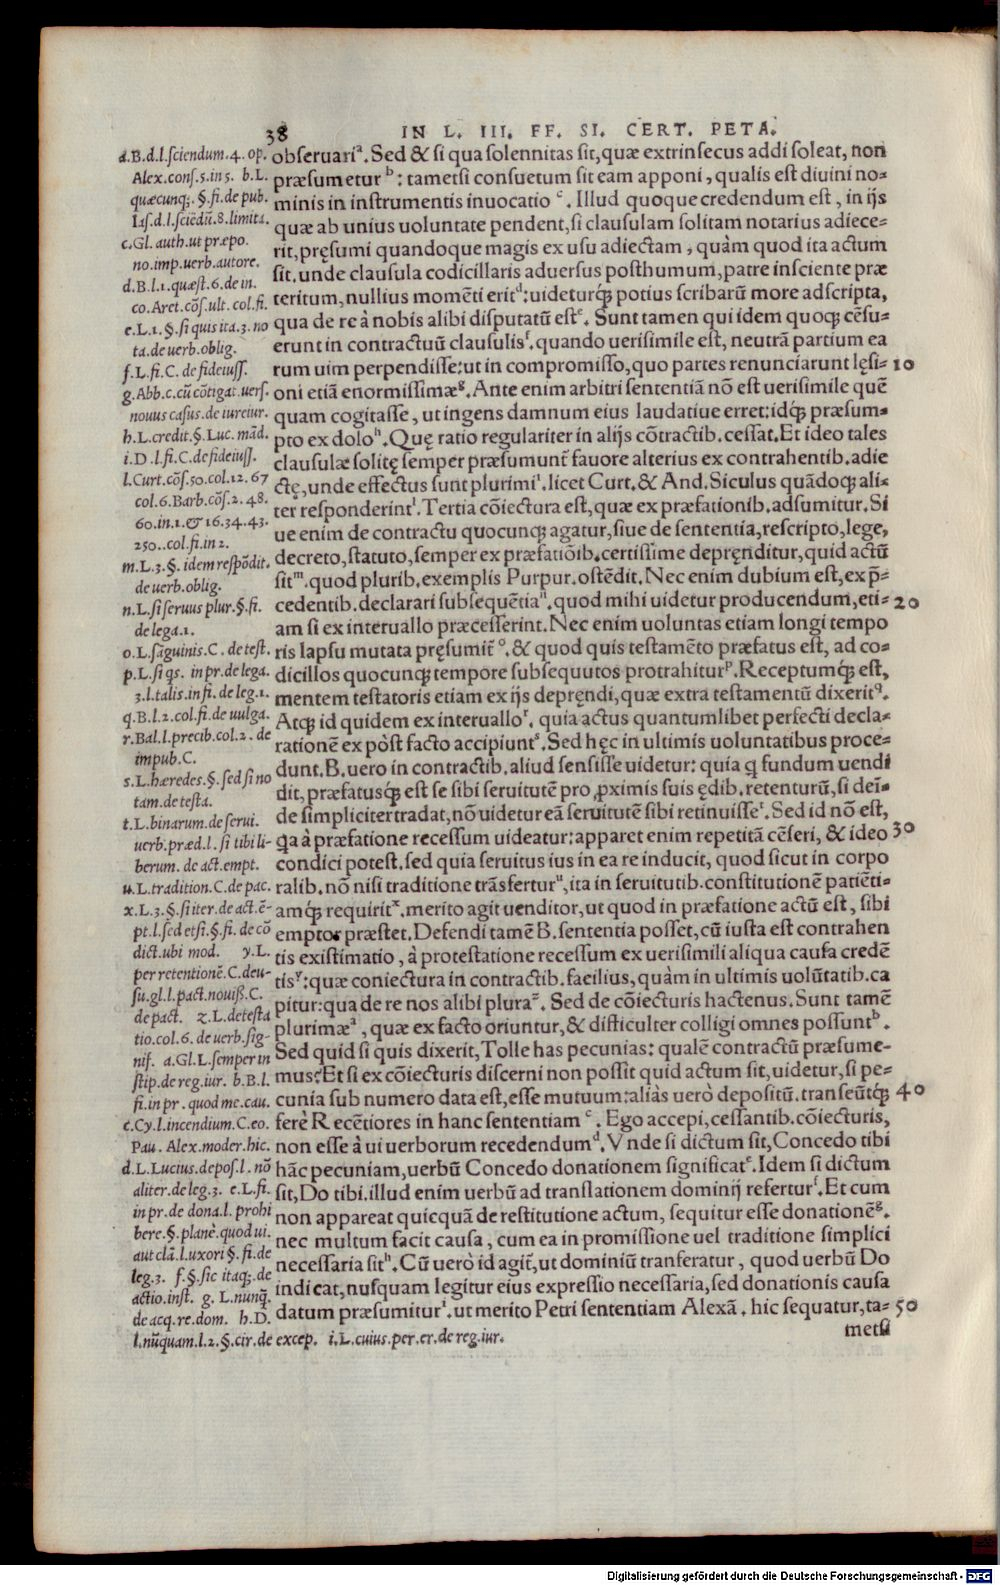 38 IN L. III. FF. SI. CERT. PETA.
obseruariᵃ. Sed & si qua solennitas sit, quæ extrinsecus addi soleat, non
præsumetur ᵇ: tametsi consuetum sit eam apponi, qualis est diuini no-
minis in instrumentis inuocatio ᶜ. Illud quoque credendum est, in ijs
quæ ab unius uoluntate pendent, si clausulam solitam notarius adiece-
rit, pręsumi quandoque magis ex usu adiectam, quàm quod ita actum
sit. unde clausula codicillaris aduersus posthumum, patre insciente præ
teritum, nullius momẽti eritᵈ: uideturq́; potius scribarũ more adscripta,
qua de re à nobis alibi disputatũ estᵉ. Sunt tamen qui idem quoq; cẽsu-
erunt in contractuũ clausulisᶠ, quando uerisimile est, neutrã partium ea
rum uim perpendisse: ut in compromisso, quo partes renunciarunt lęsi- 10
oni etiã enormissimæᵍ. Ante enim arbitri sententiã nõ est uerisimile quẽ
quam cogitasse, ut ingens damnum eius laudatiue erret: idq́; præsum-
pto ex doloʰ. Quę ratio regulariter in alijs cõtractib. cessat. Et ideo tales
clausulæ solitę semper præsumunt̃ fauore alterius ex contrahentib. adie
ctę, unde effectus sunt plurimiⁱ. licet Curt. & And. Siculus quãdoq; ali-
ter responderintˡ. Tertia cõiectura est, quæ ex præfationib. adsumitur. Si
ue enim de contractu quocunq; agatur, siue de sententia, rescripto, lege,
decreto, statuto, semper ex præfatiõib. certissime depręnditur, quid actũ
sitᵐ. quod plurib. exemplis Purpur. ostẽdit. Nec enim dubium est, ex p̃-
cedentib. declarari subsequẽtiaⁿ. quod mihi uidetur producendum, eti- 20
am si ex interuallo præcesserint. Nec enim uoluntas etiam longi tempo
ris lapsu mutata pręsumit̃ ᵒ. & quod quis testamẽto præfatus est, ad co-
dicillos quocunq; tempore subsequutos protrahiturᵖ. Receptumq́; est,
mentem testatoris etiam ex ijs depręndi, quæ extra testamentũ dixeritq.
Atq; id quidem ex interualloʳ, quia actus quantumlibet perfecti decla-
rationẽ ex pòst facto accipiuntˢ. Sed hęc in ultimis uoluntatibus proce-
dunt. B. uero in contractib. aliud sensisse uidetur: quia q fundum uendi
dit, præfatusq́; est se sibi seruitutẽ pro proximis suis ędib. retenturũ, si dei-
de simpliciter tradat, nõ uidetur eã seruitutẽ sibi retinuisseᵗ. Sed id nõ est,
qa à præfatione recessum uideatur: apparet enim repetitã cẽseri, & ideo 30
condici potest. sed quia seruitus ius in ea re inducit, quod sicut in corpo
ralib. nõ nisi traditione trãsferturᵘ, ita in seruitutib. constitutionẽ patiẽti-
amq́; requiritˣ. merito agit uenditor, ut quod in præfatione actũ est, sibi
emptor præstet. Defendi tamẽ B. sententia posset, cũ iusta est contrahen
tis existimatio, à protestatione recessum ex uerisimili aliqua causa credẽ
tisʸ: quæ coniectura in contractib. facilius, quàm in ultimis uolũtatib. ca
pitur: qua de re nos alibi pluraᶻ. Sed de cõiecturis hactenus. Sunt tamẽ
plurimæᵃ, quæ ex facto oriuntur, & difficulter colligi omnes possuntᵇ.
Sed quid si quis dixerit, Tolle has pecunias: qualẽ contractũ præsume-
mus? Et si ex cõiecturis discerni non possit quid actum sit, uidetur, si pe-
cunia sub numero data est, esse mutuum: aliàs uerò depositũ. transeũtq́; 40
ferè Recẽtiores in hanc sententiam ᶜ. Ego accepi, cessantib. cõiecturis,
non esse à ui uerborum recedendumᵈ. Vnde si dictum sit, Concedo tibi
hãc pecuniam, uerbũ Concedo donationem significatᵉ. Idem si dictum
sit, Do tibi. illud enim uerbũ ad translationem dominij referturᶠ. Et cum
non appareat quicquã de restitutione actum, sequitur esse donationẽᵍ.
nec multum facit causa, cum ea in promissione uel traditione simplici
necessaria sitʰ. Cũ uerò id agit̃, ut dominiũ tranferatur, quod uerbũ Do
indicat, nusquam legitur eius expressio necessaria, sed donationis causa
datum præsumiturⁱ. ut merito Petri sententiam Alexã. hic sequatur, ta- 50
metsi
a. B. d. l. sciendum. 4. op.
Alex. cons. 5. in 5. b. L.
quæcunq;. §. fi. de pub.
Ias. d. l. sciẽdũ. 8. limita.
c. Gl. auth. ut præpo.
no. imp. uerb. autore.
d. B. l. 1. quæst. 6. de in.
co. Aret. cõs. ult. col. fi.
e. L. 1. §. si quis ita. 3. no
ta. de uerb. oblig.
f. L. fi. C. de fideiuss.
g. Abb. c. cũ cõtigat. uers.
nouus casus. de iureiur.
h. L. credit. §. Luc. mãd.
i. D. l. fi. C. de fideiuss.
l. Curt. cõs. 50. col. 12. 67
col. 6. Barb. cõs. 2. 48.
60. in. 1. & 16. 34. 43.
250. . col. fi. in 2.
m. L. 3. §. idem respõdit.
de uerb. oblig.
n. L. si seruus plur. §. fi.
de lega. 1.
o. L. sãguinis. C. de test.
p. L. si qs. in pr. de lega.
3. l. talis. in fi. de leg. 1.
q. B. l. 2. col. fi. de uulga.
r. Bal. l. precib. col. 2. de
impub. C.
s. L. hæredes. §. sed si no
tam. de testa.
t. L. binarum. de serui.
uerb. præd. l. si tibi li-
berum. de act. empt.
u. L. tradition. C. de pac.
x. L. 3. §. si iter. de act. ẽ-
pt. l. sed etsi. §. fi. de cõ
dict. ubi mod. y. L.
per retentionẽ. C. de u-
su. gl. l. pact. nouiß. C.
de pact. z. L. de testa
tio. col. 6. de uerb. sig-
nif. a. Gl. L. semper in
stip. de reg. iur. b. B. l.
fi. in pr. quod me. cau.
c. Cy. l. incendium. C. eo.
Pau. Alex. moder. hic.
d. L. Lucius. depos. l. nõ
aliter. de leg. 3. e. L. fi.
in pr. de dona. l. prohi
bere. §. planè. quod ui.
aut clã. l. uxori §. fi. de
leg. 3. f. §. sic itaq;. de
actio. inst. g. L. nunq̃.
de acq. re. dom. h. D.
l. nũquam. l. 2. §. cir. de excep. i. L. cuius. per. er. de reg. iur.
Digitalisierung gefördert durch die Deutsche Forschungsgemeinschaft - DFG